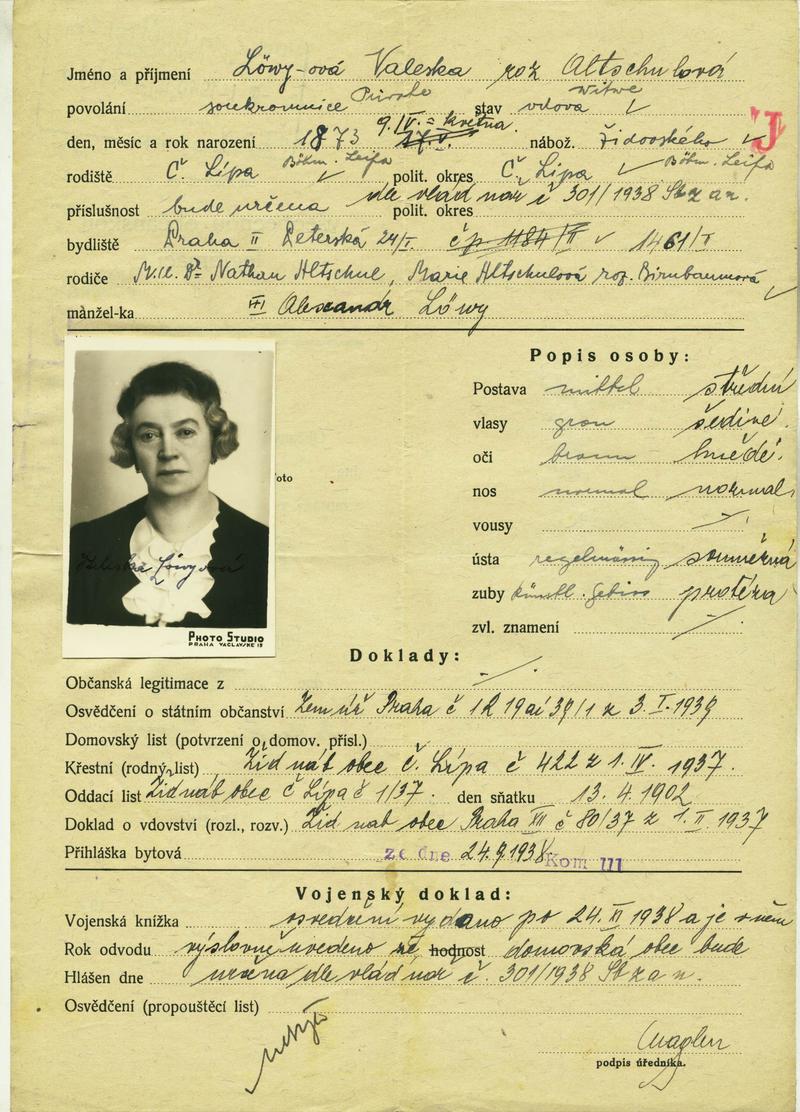 Jméno a příjmení Löwy-ová Valeska roz Altschulová
povolání soukromnice Private stav vdova Witwe
den, měsíc a rok narození 1873 9. IV. = května nábož. židovského J
rodiště Č. Lípa Böhm. Leipa polit. okres Č. Lípa Böhm. Leipa
příslušnost bude určena polit. okres dle vlád nař č 301/1938 Sb z a n.
bydliště Praha II Peterská 24/I čp 1184/II 1461/I
rodiče Dr Nathan Altschul, Marie Altschulová roz. Birnbaumová
mànžel-ka Alexandr Löwy
Popis osoby:
Postava mittel střední
vlasy grau šedivé
oči braun hnědé
nos normal normal
vousy
ústa regelmässig souměrná
zuby künstl. Gebiss protéza
zvl. znamení
oto
Valeska Löwyová
PHOTO STUDIO
PRAHA VACLAVSKE 19
Doklady:
Občanská legitimace z
Osvědčení o státním občanství Zem úř Praha č 3. I. 1939
Domovský list (potvrzení o domov. přísl.)
Křestní (rodný list) Žid náb obec č. Lípa č 422 z 1. IV. 1937.
Oddací list Žid náb obec č Lípa č 1/37. den sňatku 13. 4. 1902
Doklad o vdovství (rozl., rozv.) Žid náb obec Praha XII č 80/37 z 1. II. 1937
Přihláška bytová ze dne 24.9.1938 Kom III
Vojenský doklad:
Vojenská knížka osvědčení vydáno po 24. XI 1938 a je v něm
Rok odvodu výslovně uvedeno že hodnost domovská obec bude
Hlášen dne určena dle vlád nař č. 301/1938 Sb z a n.
Osvědčení (propouštěcí list)
podpis úředníka.